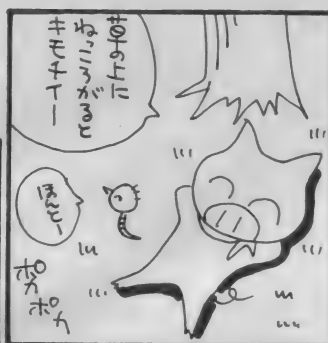 草の上に
ねっころがると
キモチイー
ほんとー
ポカ
ポカ